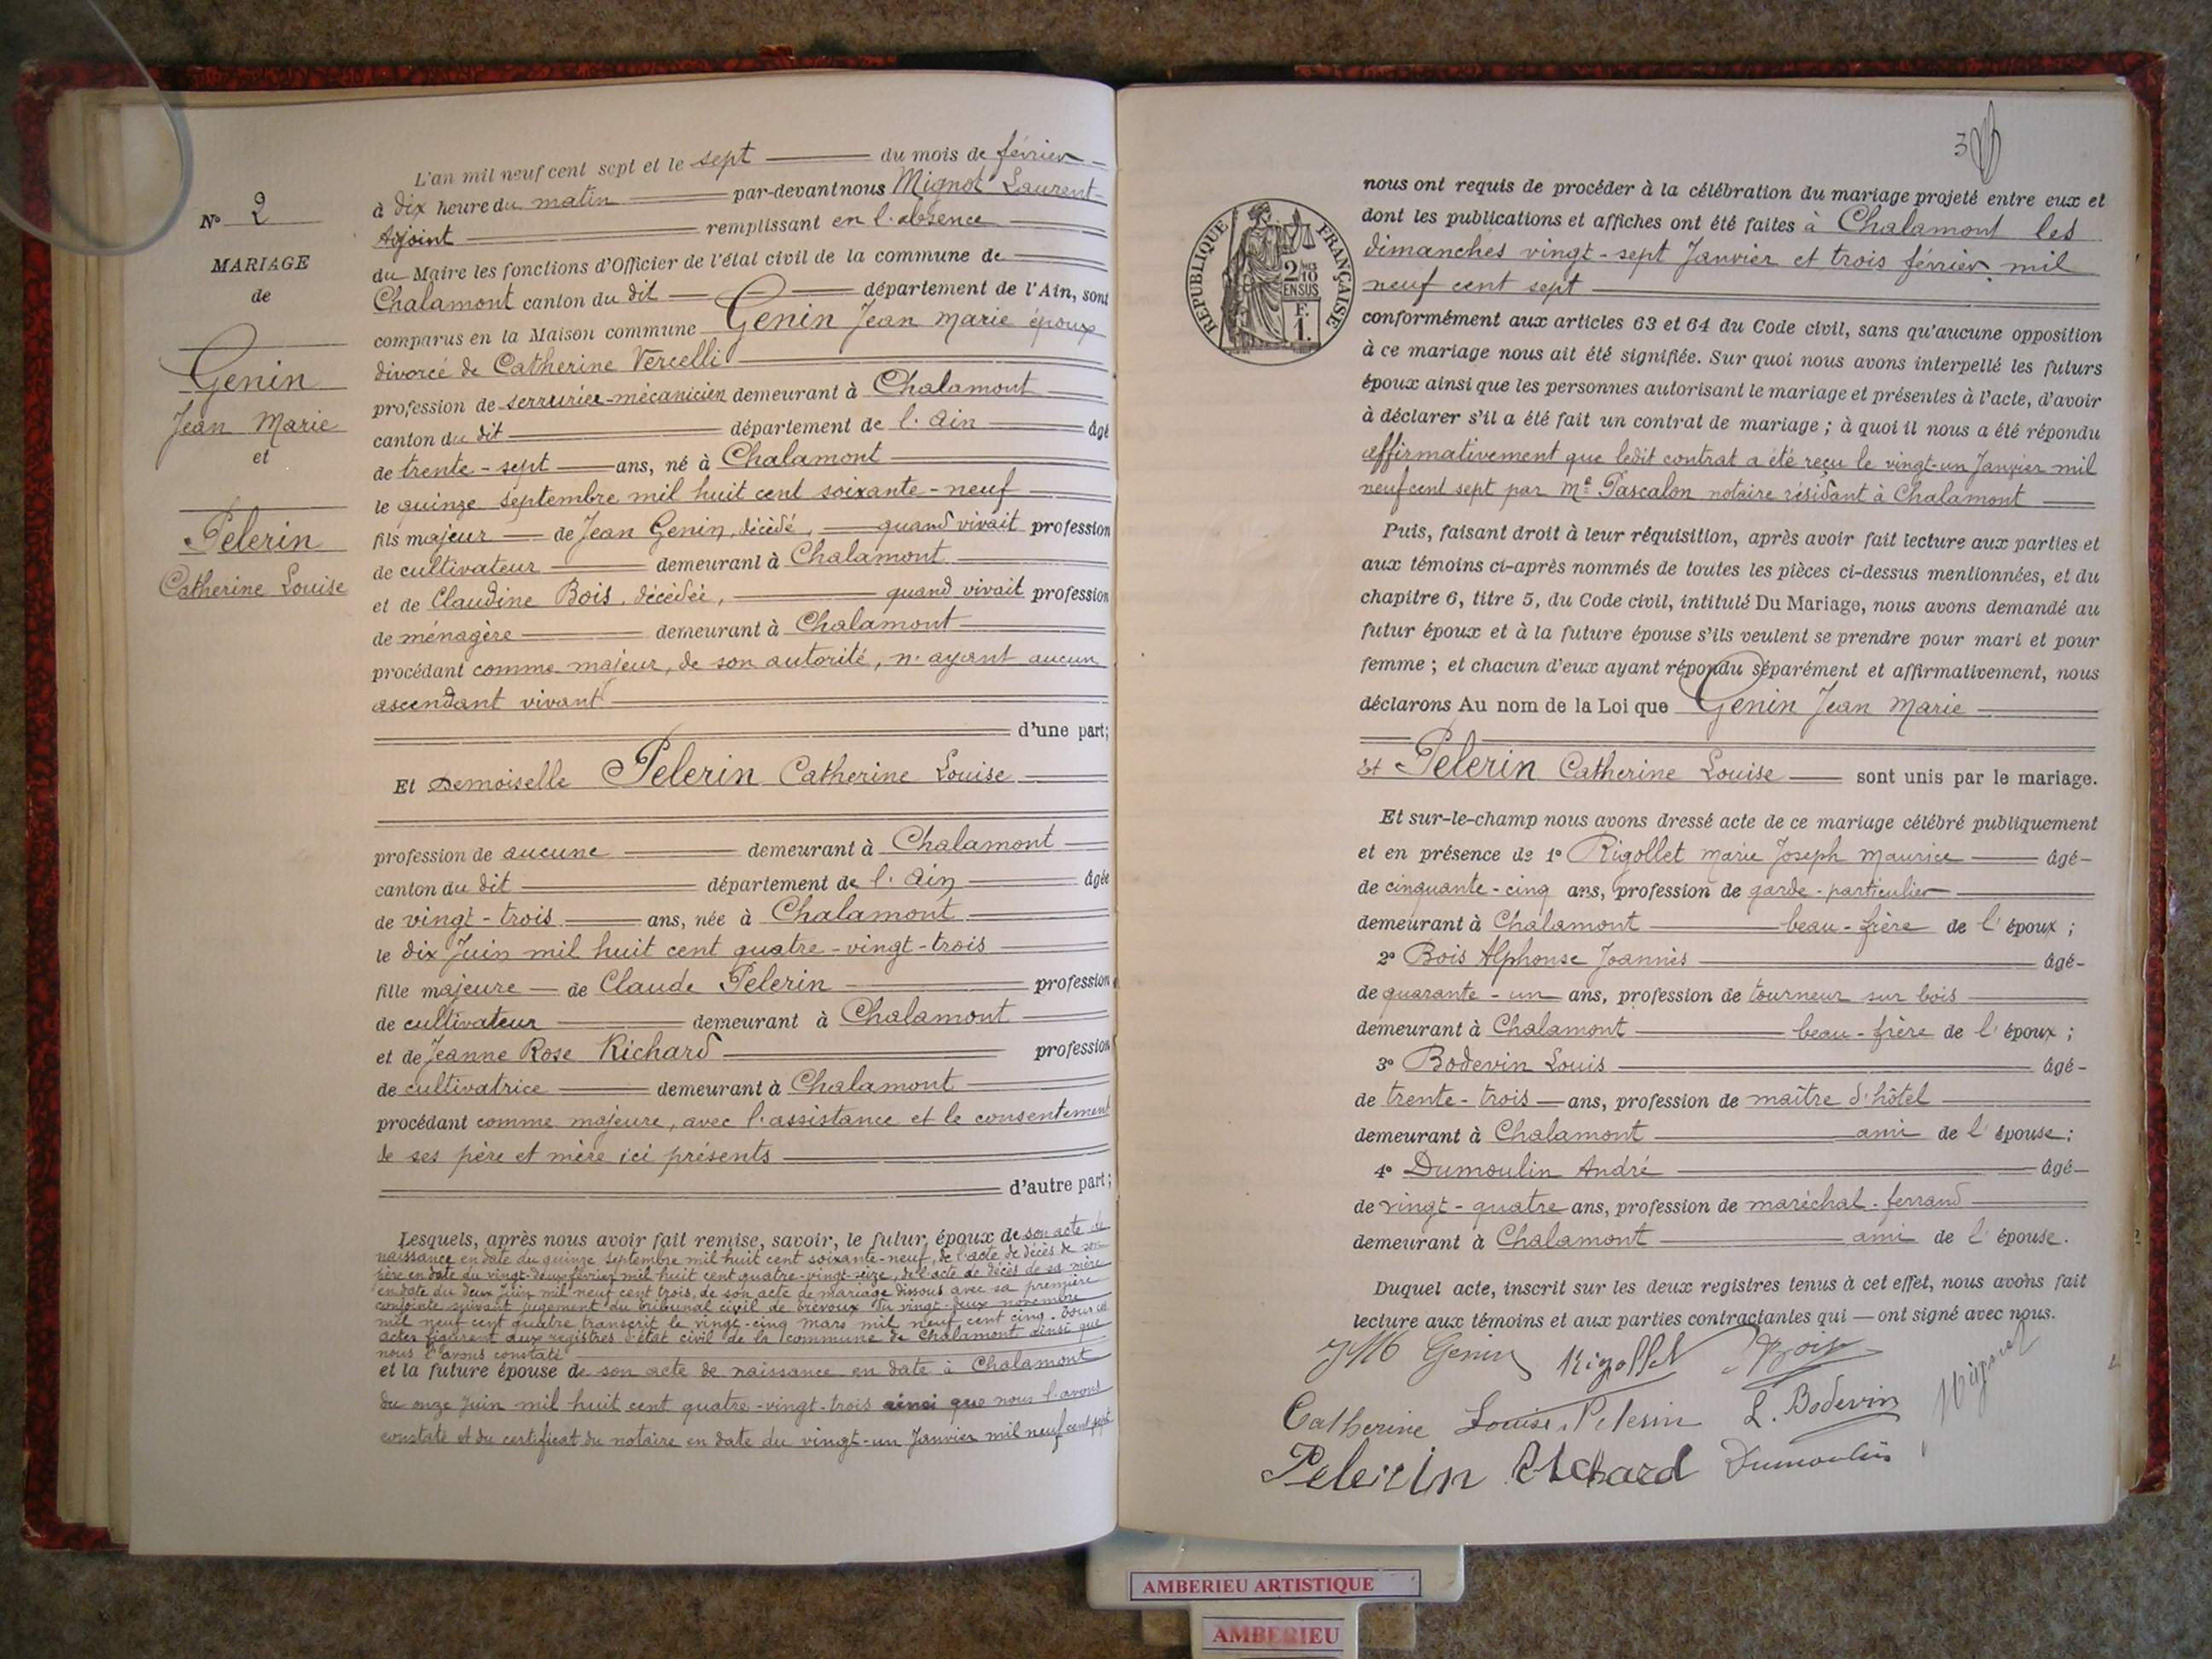 N° 2
MARIAGE
de
Genin
Jean Marie
et
Pelerin
Catherine Louise
L'an mil neuf cent sept et le sept du mois de février
à dix heure du matin par-devant nous Mignot Laurent
Adjoint remplissant en l'absence
du Maire les fonctions d'Officier de l'état civil de la commune de
Chalamont canton du dit département de l'Ain, sont
comparus en la Maison commune Genin Jean Marie époux
divorcé de Catherine Vercelli
profession de serrurier-mécanicien demeurant à Chalamont
canton du dit département de l'Ain âgé
de trente-sept ans, né à Chalamont
le quinze septembre mil huit cent soixante-neuf
fils majeur de Jean Genin, décédé, quand vivait profession
de cultivateur demeurant à Chalamont
et de Claudine Bois, décédée, quand vivait profession
de ménagère demeurant à Chalamont
procédant comme majeur, de son autorité, n'ayant aucun
ascendant vivant
d'une part;
Et Demoiselle Pelerin Catherine Louise
profession de aucune demeurant à Chalamont
canton du dit département de l'Ain âgée
de vingt-trois ans, née à Chalamont
le dix Juin mil huit cent quatre-vingt-trois
fille majeure de Claude Pelerin profession
de cultivateur demeurant à Chalamont
et de Jeanne Rose Richard profession
de cultivatrice demeurant à Chalamont
procédant comme majeure, avec l'assistance et le consentement
de ses père et mère ici présents
d'autre part;
Lesquels, après nous avoir fait remise, savoir, le futur époux de son acte de
naissance en date du quinze septembre mil huit cent soixante-neuf, de l'acte de décès de son
père en date du vingt-deux février mil huit cent quatre-vingt-seize, de l'acte de décès de sa mère
en date du deux Juin mil neuf cent trois, de son acte de mariage dissous avec sa première
conjointe suivant jugement du tribunal civil de Trévoux du vingt-deux novembre
mil neuf cent quatre transcrit le vingt-cinq mars mil neuf cent cinq. Tous ces
actes figurent aux registres d'état civil de la commune de Chalamont ainsi que
nous l'avons constaté
et la future épouse de son acte de naissance en date à Chalamont
du onze Juin mil huit cent quatre-vingt-trois ainsi que nous l'avons
constaté et du certificat du notaire en date du vingt-un Janvier mil neuf cent sept
3
RÉPUBLIQUE FRANÇAISE
2/10
EN SUS
F.
1.
nous ont requis de procéder à la célébration du mariage projeté entre eux et
dont les publications et affiches ont été faites à Chalamont les
dimanches vingt-sept Janvier et trois février mil
neuf cent sept
conformément aux articles 63 et 64 du Code civil, sans qu'aucune opposition
à ce mariage nous ait été signifiée. Sur quoi nous avons interpellé les futurs
époux ainsi que les personnes autorisant le mariage et présentes à l'acte, d'avoir
à déclarer s'il a été fait un contrat de mariage; à quoi il nous a été répondu
affirmativement que ledit contrat a été reçu le vingt-un Janvier mil
neuf cent sept par Me Pascalon notaire résidant à Chalamont
Puis, faisant droit à leur réquisition, après avoir fait lecture aux parties et
aux témoins ci-après nommés de toutes les pièces ci-dessus mentionnées, et du
chapitre 6, titre 5, du Code civil, intitulé Du Mariage, nous avons demandé au
futur époux et à la future épouse s'ils veulent se prendre pour mari et pour
femme; et chacun d'eux ayant répondu séparément et affirmativement, nous
déclarons Au nom de la Loi que Genin Jean Marie
et Pelerin Catherine Louise sont unis par le mariage.
Et sur-le-champ nous avons dressé acte de ce mariage célébré publiquement
et en présence de 1° Rigollet Marie Joseph Maurice âgé
de cinquante-cinq ans, profession de garde-particulier
demeurant à Chalamont beau-frère de l'époux;
2° Bois Alphonse Joannès âgé
de quarante-un ans, profession de tourneur sur bois
demeurant à Chalamont beau-frère de l'époux;
3° Bodevin Louis âgé
de trente-trois ans, profession de maître d'hôtel
demeurant à Chalamont ami de l'épouse;
4° Dumoulin André âgé
de vingt-quatre ans, profession de maréchal-ferrand
demeurant à Chalamont ami de l'épouse.
Duquel acte, inscrit sur les deux registres tenus à cet effet, nous avons fait
lecture aux témoins et aux parties contractantes qui ont signé avec nous.
JM Genin Rigollet Bois Mignot
Catherine Louise Pelerin L. Bodevin
Pelerin Richard Dumoulin
AMBERIEU ARTISTIQUE
AMBERIEU